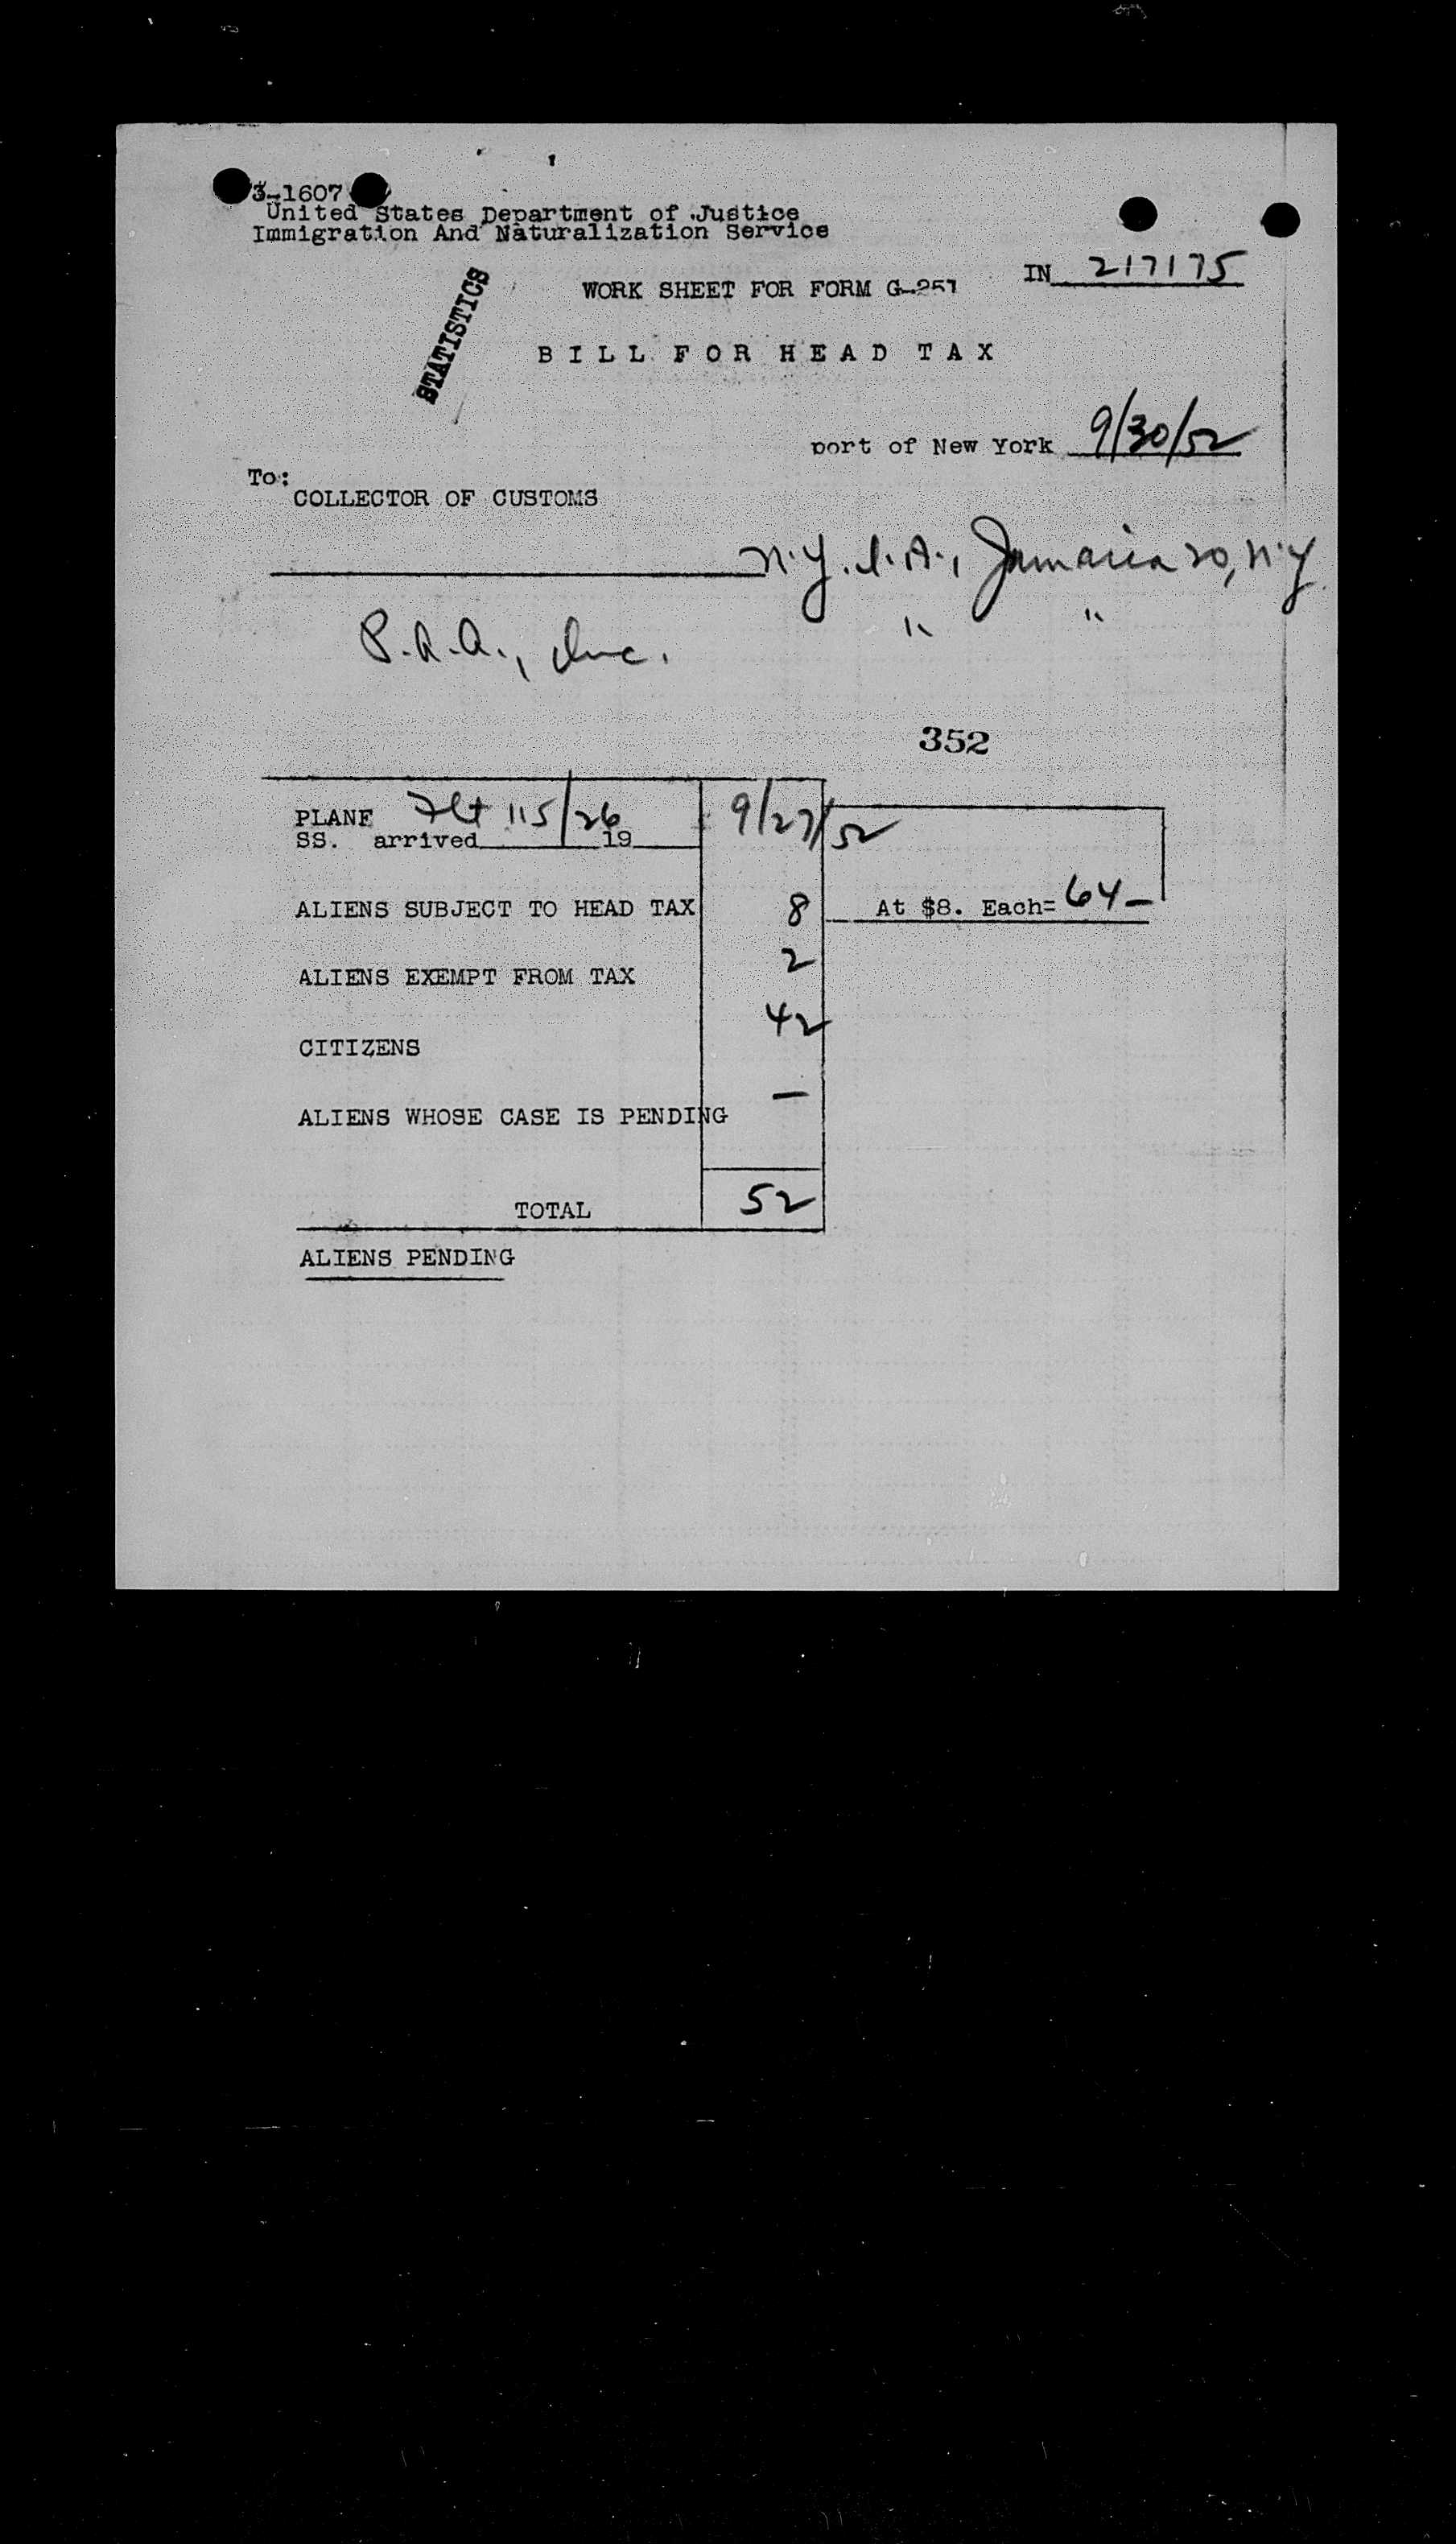 3-1607
United States Department of Justice
Immigration And Naturalization Service
STATISTICS
IN 217175
WORK SHEET FOR FORM G-251
BILL FOR HEAD TAX
port of New York 9/30/52
To:
COLLECTOR OF CUSTOMS
N.Y.I.A., Jamaica 20, N.Y.
P.A.A., Inc. " "
352
PLANE Flt 115/26 9/27/52
SS. arrived 19
ALIENS SUBJECT TO HEAD TAX 8 At $8. Each= 64-
ALIENS EXEMPT FROM TAX 2
CITIZENS 42
ALIENS WHOSE CASE IS PENDING —
TOTAL 52
ALIENS PENDING